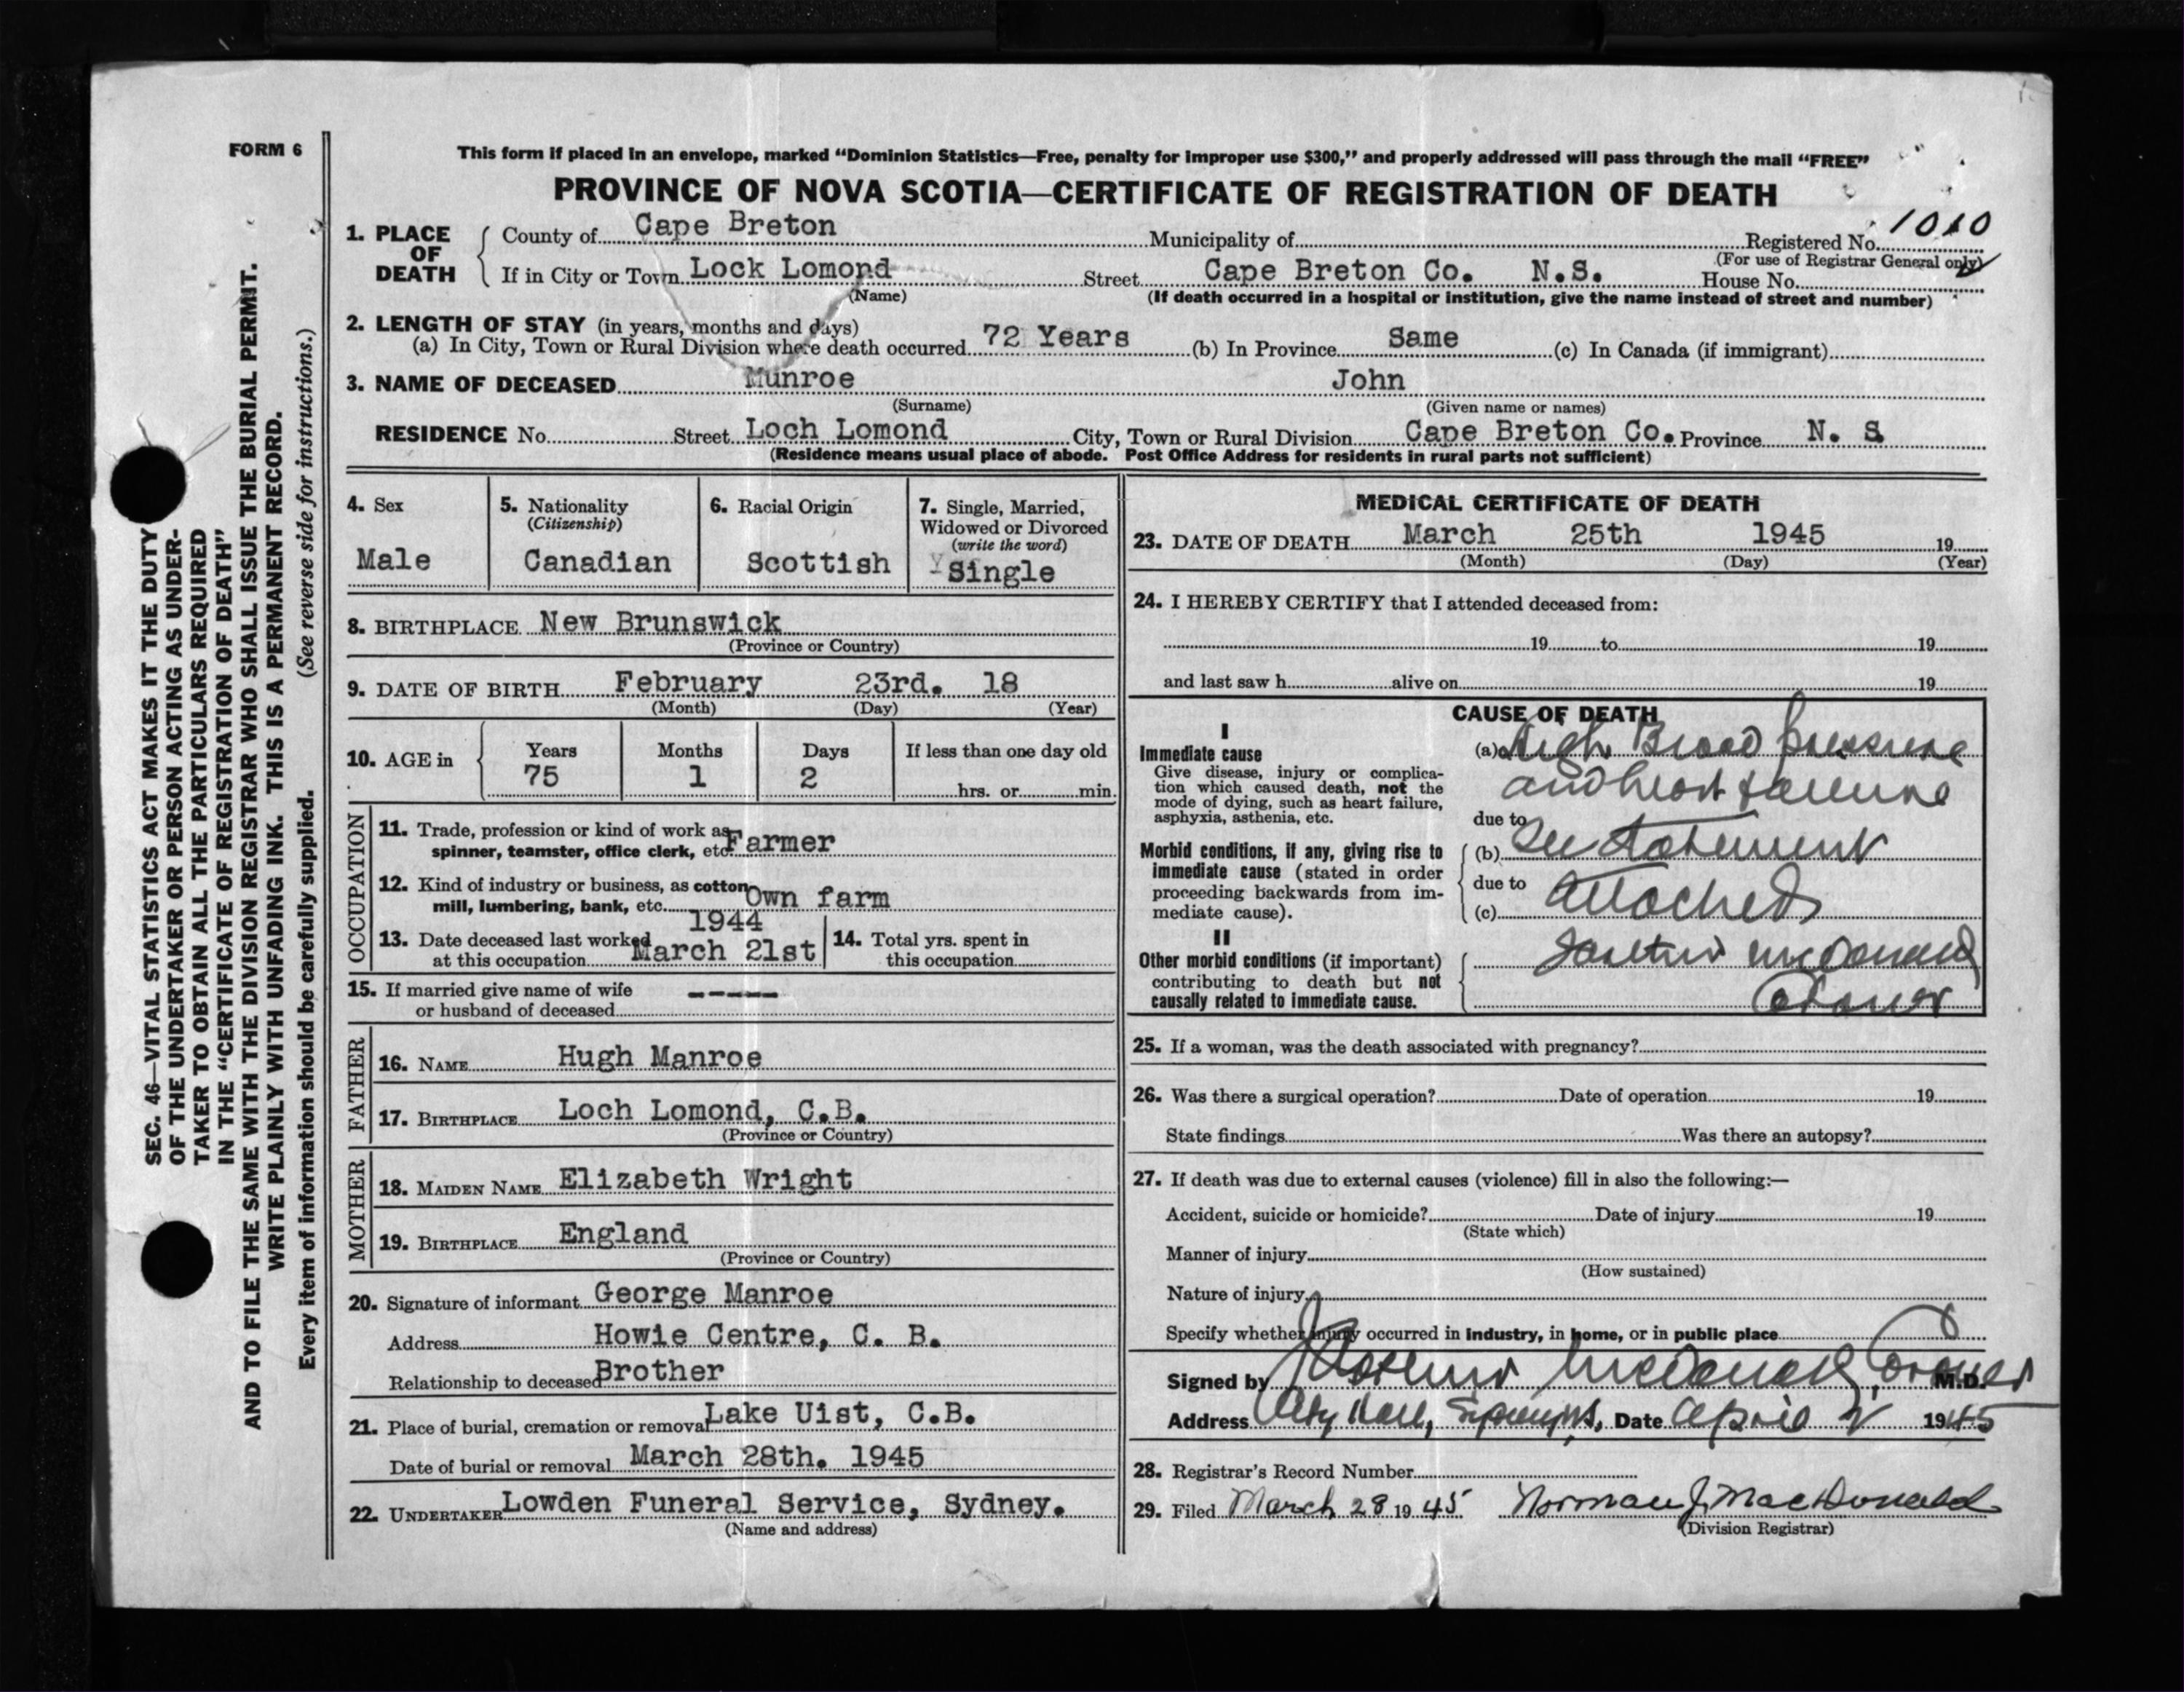 FORM 6
This form if placed in an envelope, marked “Dominion Statistics—Free, penalty for improper use $300,” and properly addressed will pass through the mail “FREE”
PROVINCE OF NOVA SCOTIA—CERTIFICATE OF REGISTRATION OF DEATH
1. PLACE OF DEATH
County of Cape Breton Municipality of Registered No. 1010
(For use of Registrar General only)
If in City or Town Lock Lomond Street Cape Breton Co. N.S. House No.
(Name) (If death occurred in a hospital or institution, give the name instead of street and number)
2. LENGTH OF STAY (in years, months and days)
(a) In City, Town or Rural Division where death occurred 72 Years (b) In Province Same (c) In Canada (if immigrant)
3. NAME OF DECEASED Munroe John
(Surname) (Given name or names)
RESIDENCE No. Street Loch Lomond City, Town or Rural Division Cape Breton Co. Province N. S
(Residence means usual place of abode. Post Office Address for residents in rural parts not sufficient)
4. Sex
Male
5. Nationality
(Citizenship)
Canadian
6. Racial Origin
Scottish
7. Single, Married,
Widowed or Divorced
(write the word)
Single
8. BIRTHPLACE New Brunswick
(Province or Country)
9. DATE OF BIRTH February 23rd. 18
(Month) (Day) (Year)
10. AGE in
Years Months Days If less than one day old
75 1 2 hrs. or min.
OCCUPATION
11. Trade, profession or kind of work as
spinner, teamster, office clerk, etc. Farmer
12. Kind of industry or business, as cotton
mill, lumbering, bank, etc. Own farm
1944
13. Date deceased last worked
at this occupation March 21st
14. Total yrs. spent in
this occupation
15. If married give name of wife
or husband of deceased -----
FATHER
16. NAME Hugh Manroe
17. BIRTHPLACE Loch Lomond, C.B.
(Province or Country)
MOTHER
18. MAIDEN NAME Elizabeth Wright
19. BIRTHPLACE England
(Province or Country)
20. Signature of informant George Manroe
Address Howie Centre, C. B.
Relationship to deceased Brother
21. Place of burial, cremation or removal Lake Uist, C.B.
Date of burial or removal March 28th. 1945
22. UNDERTAKER Lowden Funeral Service, Sydney.
(Name and address)
MEDICAL CERTIFICATE OF DEATH
23. DATE OF DEATH March 25th 1945 19
(Month) (Day) (Year)
24. I HEREBY CERTIFY that I attended deceased from:
19 to 19
and last saw h alive on 19
CAUSE OF DEATH
I
Immediate cause
Give disease, injury or complica-
tion which caused death, not the
mode of dying, such as heart failure,
asphyxia, asthenia, etc.
(a) High Blood pressure
and heart failure
due to
Morbid conditions, if any, giving rise to
immediate cause (stated in order
proceeding backwards from im-
mediate cause).
(b) See statement
due to
(c) attached
II
Other morbid conditions (if important)
contributing to death but not
causally related to immediate cause.
McDonald
Coroner
25. If a woman, was the death associated with pregnancy?
26. Was there a surgical operation? Date of operation 19
State findings Was there an autopsy?
27. If death was due to external causes (violence) fill in also the following:—
Accident, suicide or homicide? Date of injury 19
(State which)
Manner of injury
(How sustained)
Nature of injury
Specify whether injury occurred in industry, in home, or in public place
Signed by McDonald, Coroner M.D.
Address City Hall, Date April 1945
28. Registrar's Record Number
29. Filed March 28 1945 Norman J. MacDonald
(Division Registrar)
SEC. 46—VITAL STATISTICS ACT MAKES IT THE DUTY
OF THE UNDERTAKER OR PERSON ACTING AS UNDER-
TAKER TO OBTAIN ALL THE PARTICULARS REQUIRED
IN THE “CERTIFICATE OF REGISTRATION OF DEATH”
AND TO FILE THE SAME WITH THE DIVISION REGISTRAR WHO SHALL ISSUE THE BURIAL PERMIT.
WRITE PLAINLY WITH UNFADING INK. THIS IS A PERMANENT RECORD.
Every item of information should be carefully supplied. (See reverse side for instructions.)